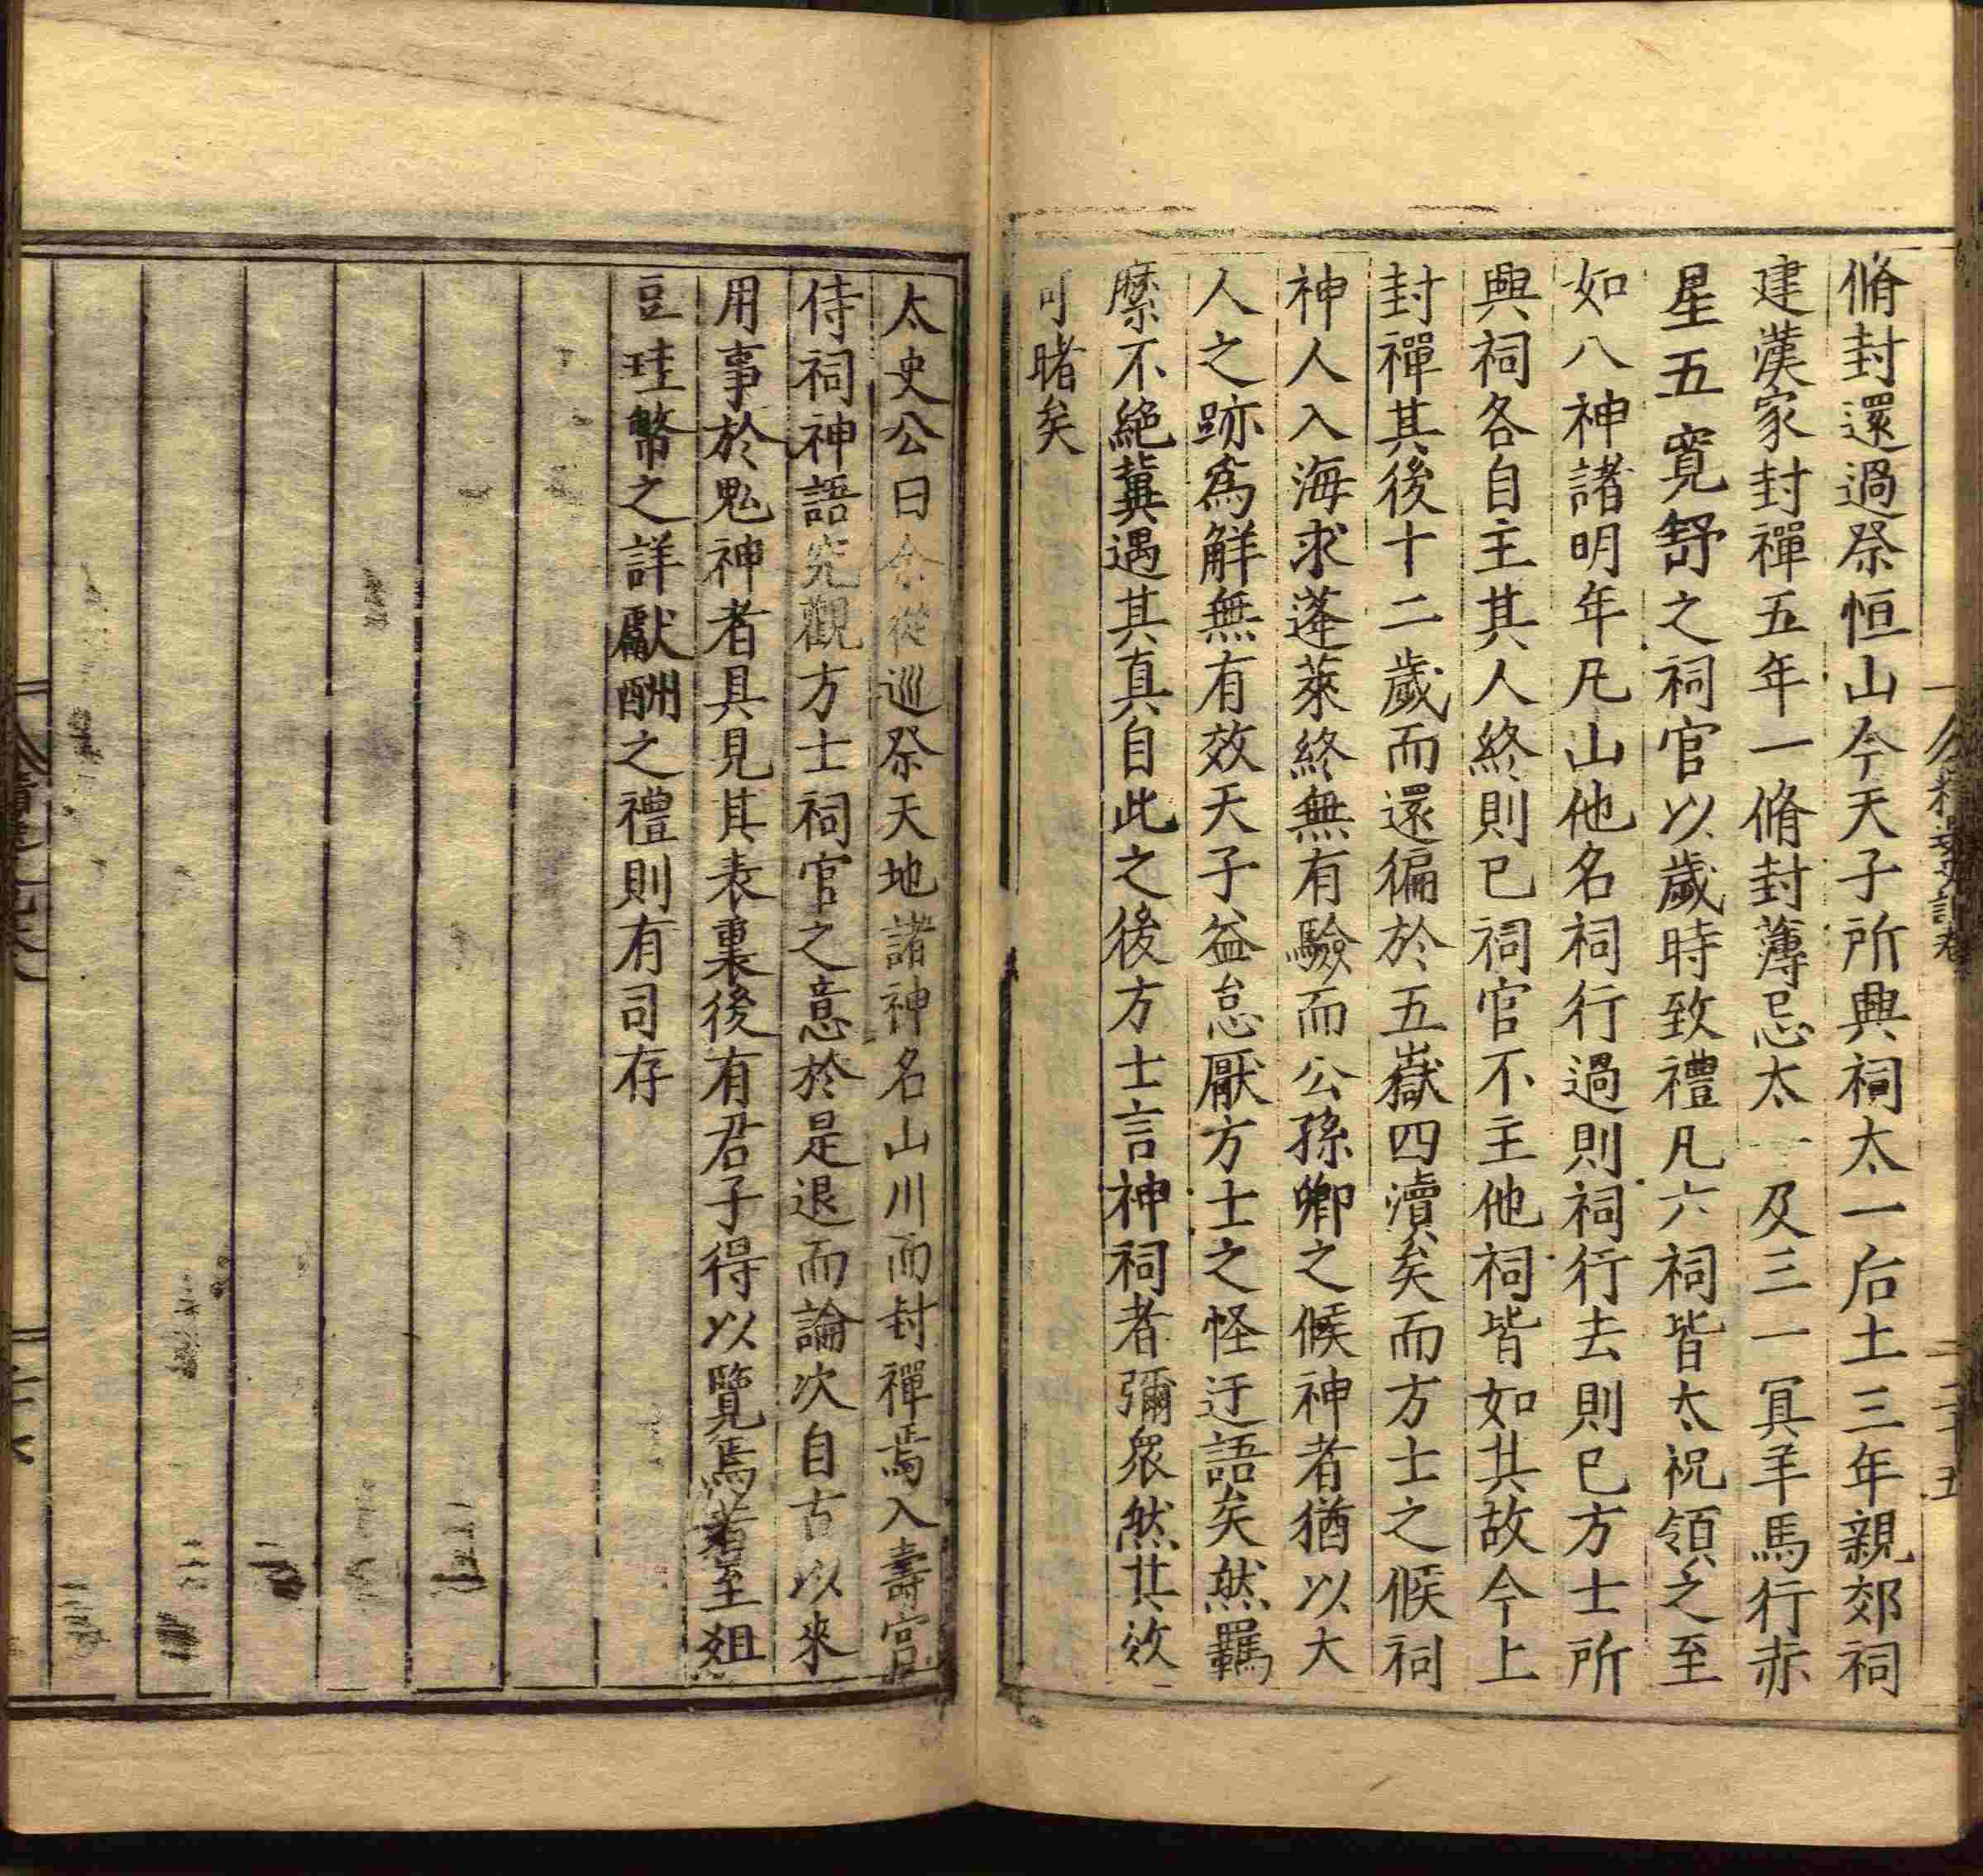 脩封還過祭恒山今天子所興祠太一后土三年親郊祠
建漢家封禪五年一脩封薄忌太一及三一冥羊馬行赤
星五寬舒之祠官以歲時致禮凡六祠皆太祝領之至
如八神諸明年凡山他名祠行過則祠行去則已方士所
興祠各自主其人終則已祠官不主他祠皆如其故今上
封禪其後十二歲而還徧於五嶽四瀆矣而方士之候祠
神人入海求蓬萊終無有驗而公孫卿之候神者猶以大
人之跡爲解無有效天子益怠厭方士之怪迂語矣然羈
縻不絶冀遇其真自此之後方士言神祠者彌衆然其效
可睹矣
太史公曰余從巡祭天地諸神名山川而封禪焉入壽宮
侍祠神語究觀方士祠官之意於是退而論次自古以來
用事於鬼神者具見其表裏後有君子得以覽焉若至俎
豆珪幣之詳獻酬之禮則有司存
二十五